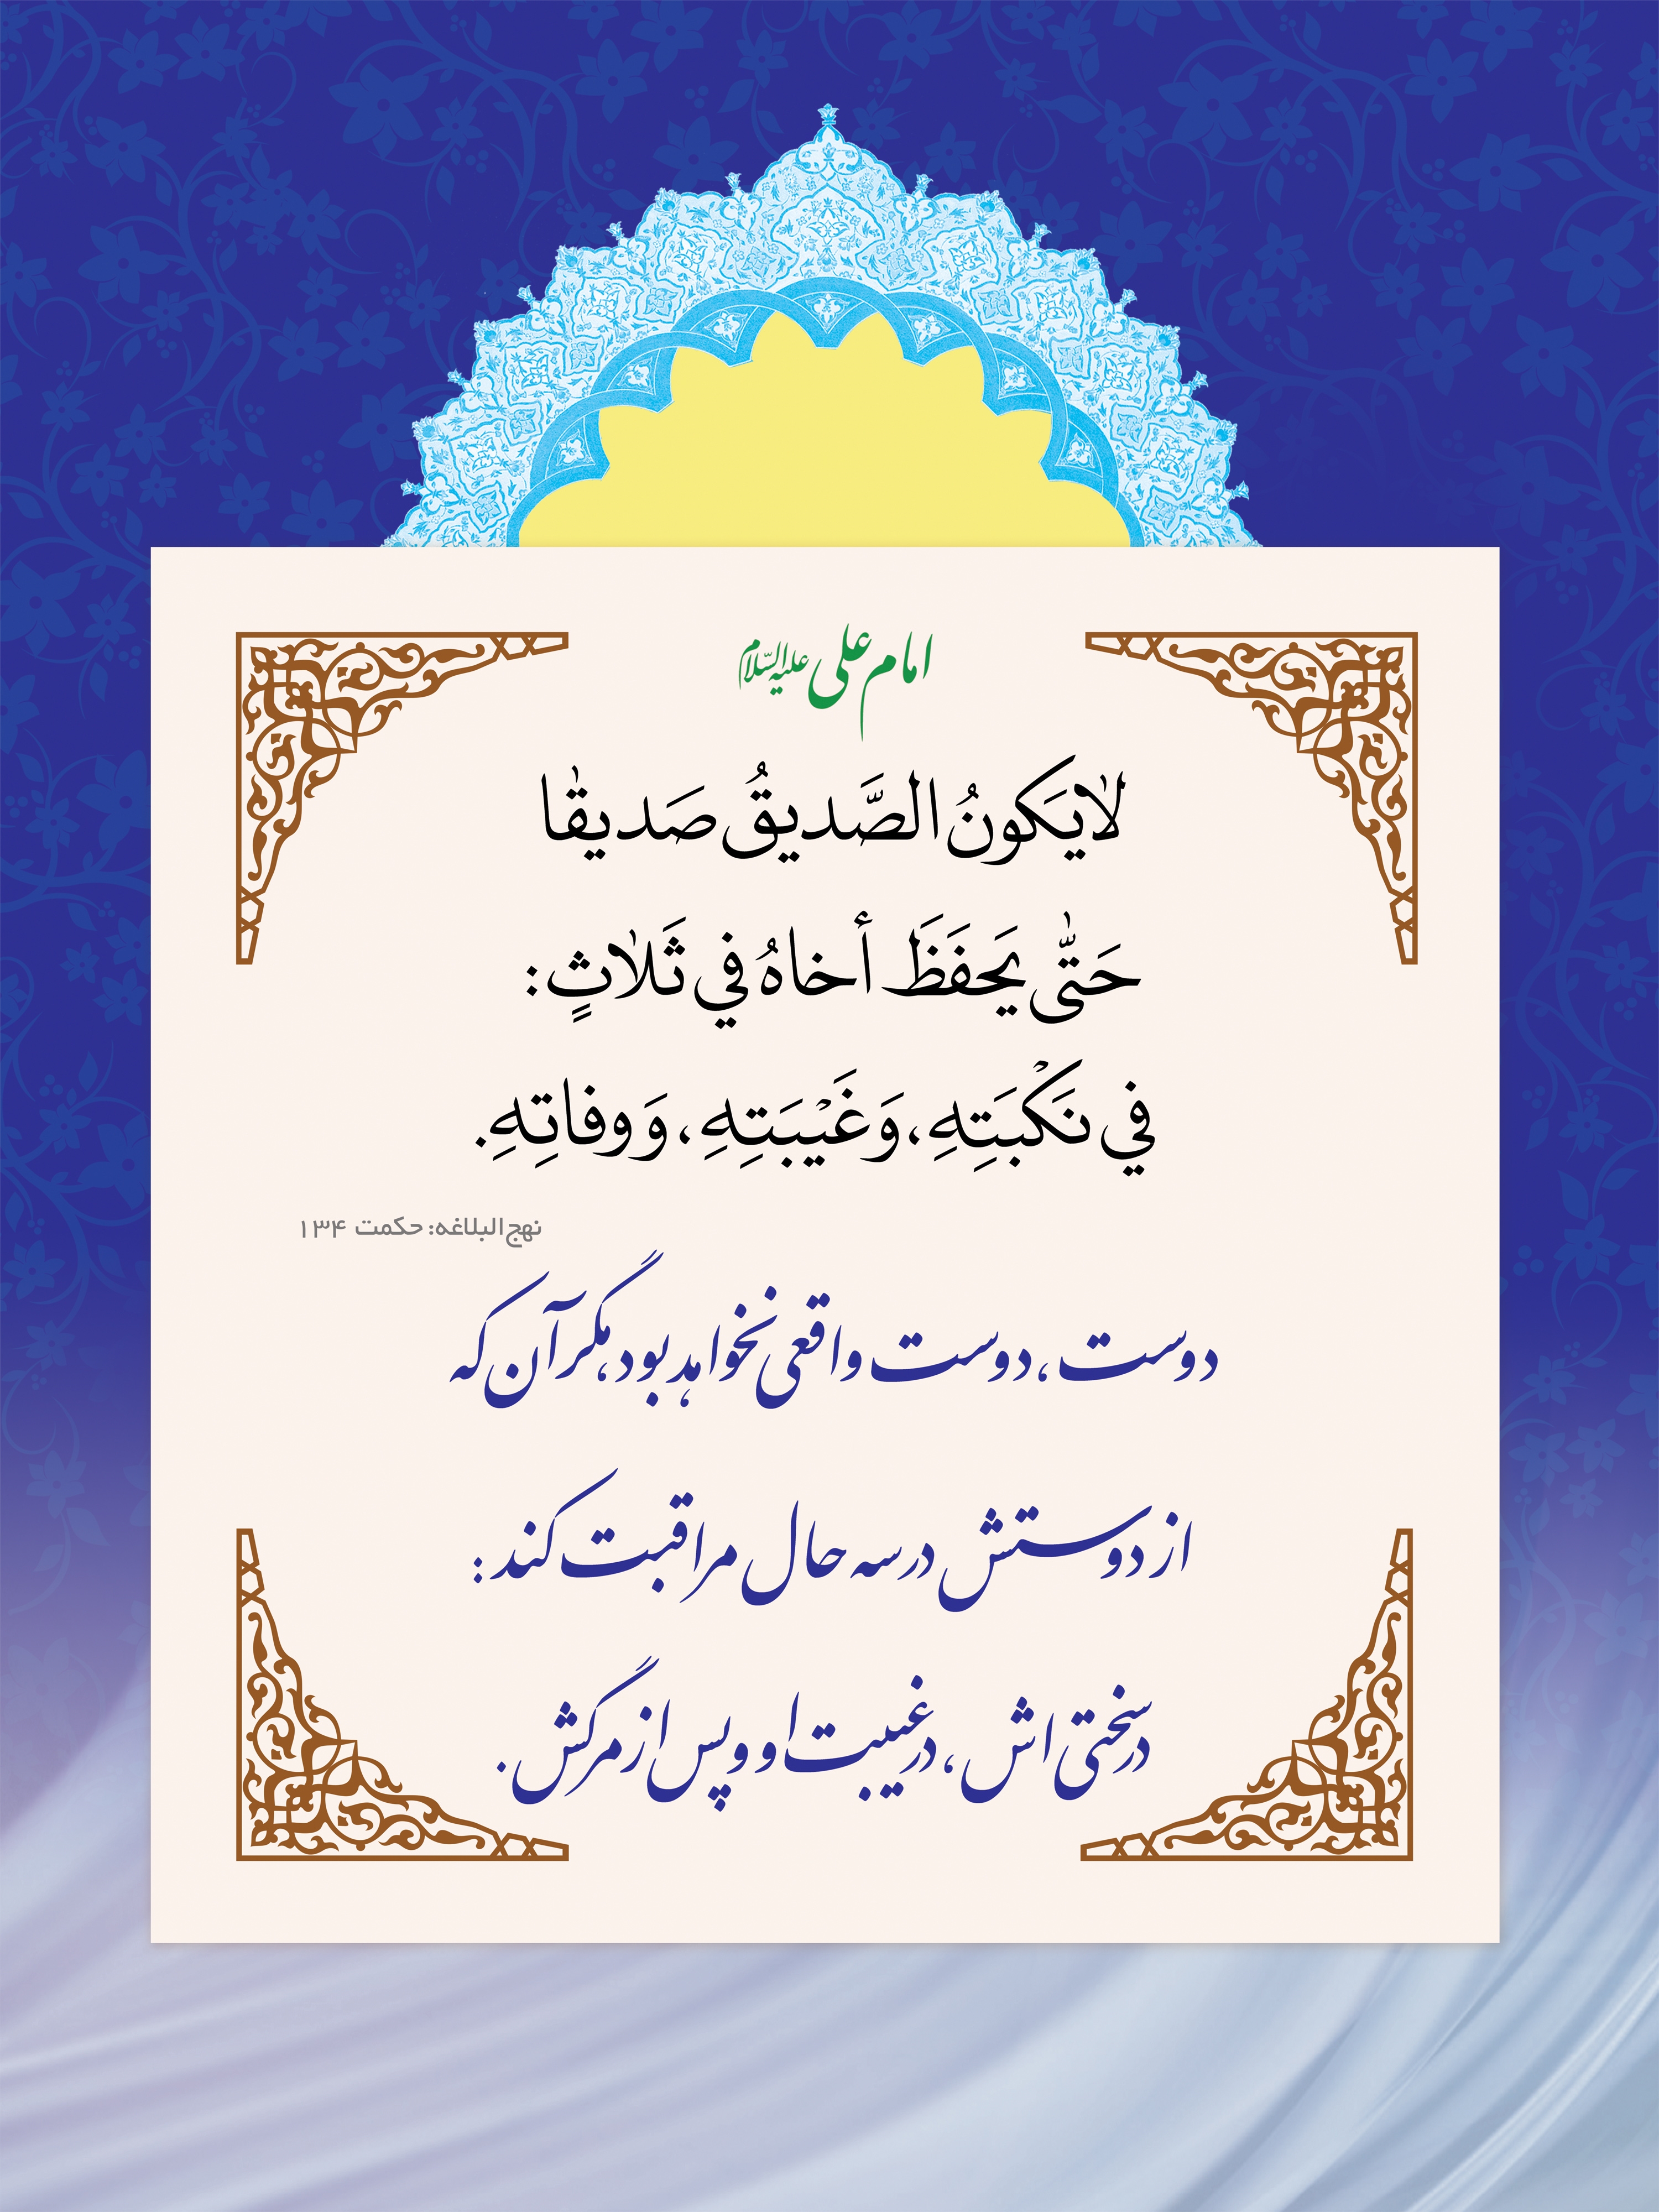 امام علی علیه السّلام
لایَکونُ الصَّدیقُ صَدیقٰا
حَتّٰی یَحفَظَ أخاهُ في ثَلاثٍ:
في نَکْبَتِهِ، وَغَیْبَتِهِ، وَ وفاتِهِ.
نهج‌البلاغه: حکمت ۱۳۴
دوست، دوست واقعی نخواهد بود، مگر آن که
از دوستش در سه حال مراقبت کند:
در سختی اش، در غیبت او و پس از مرگش.